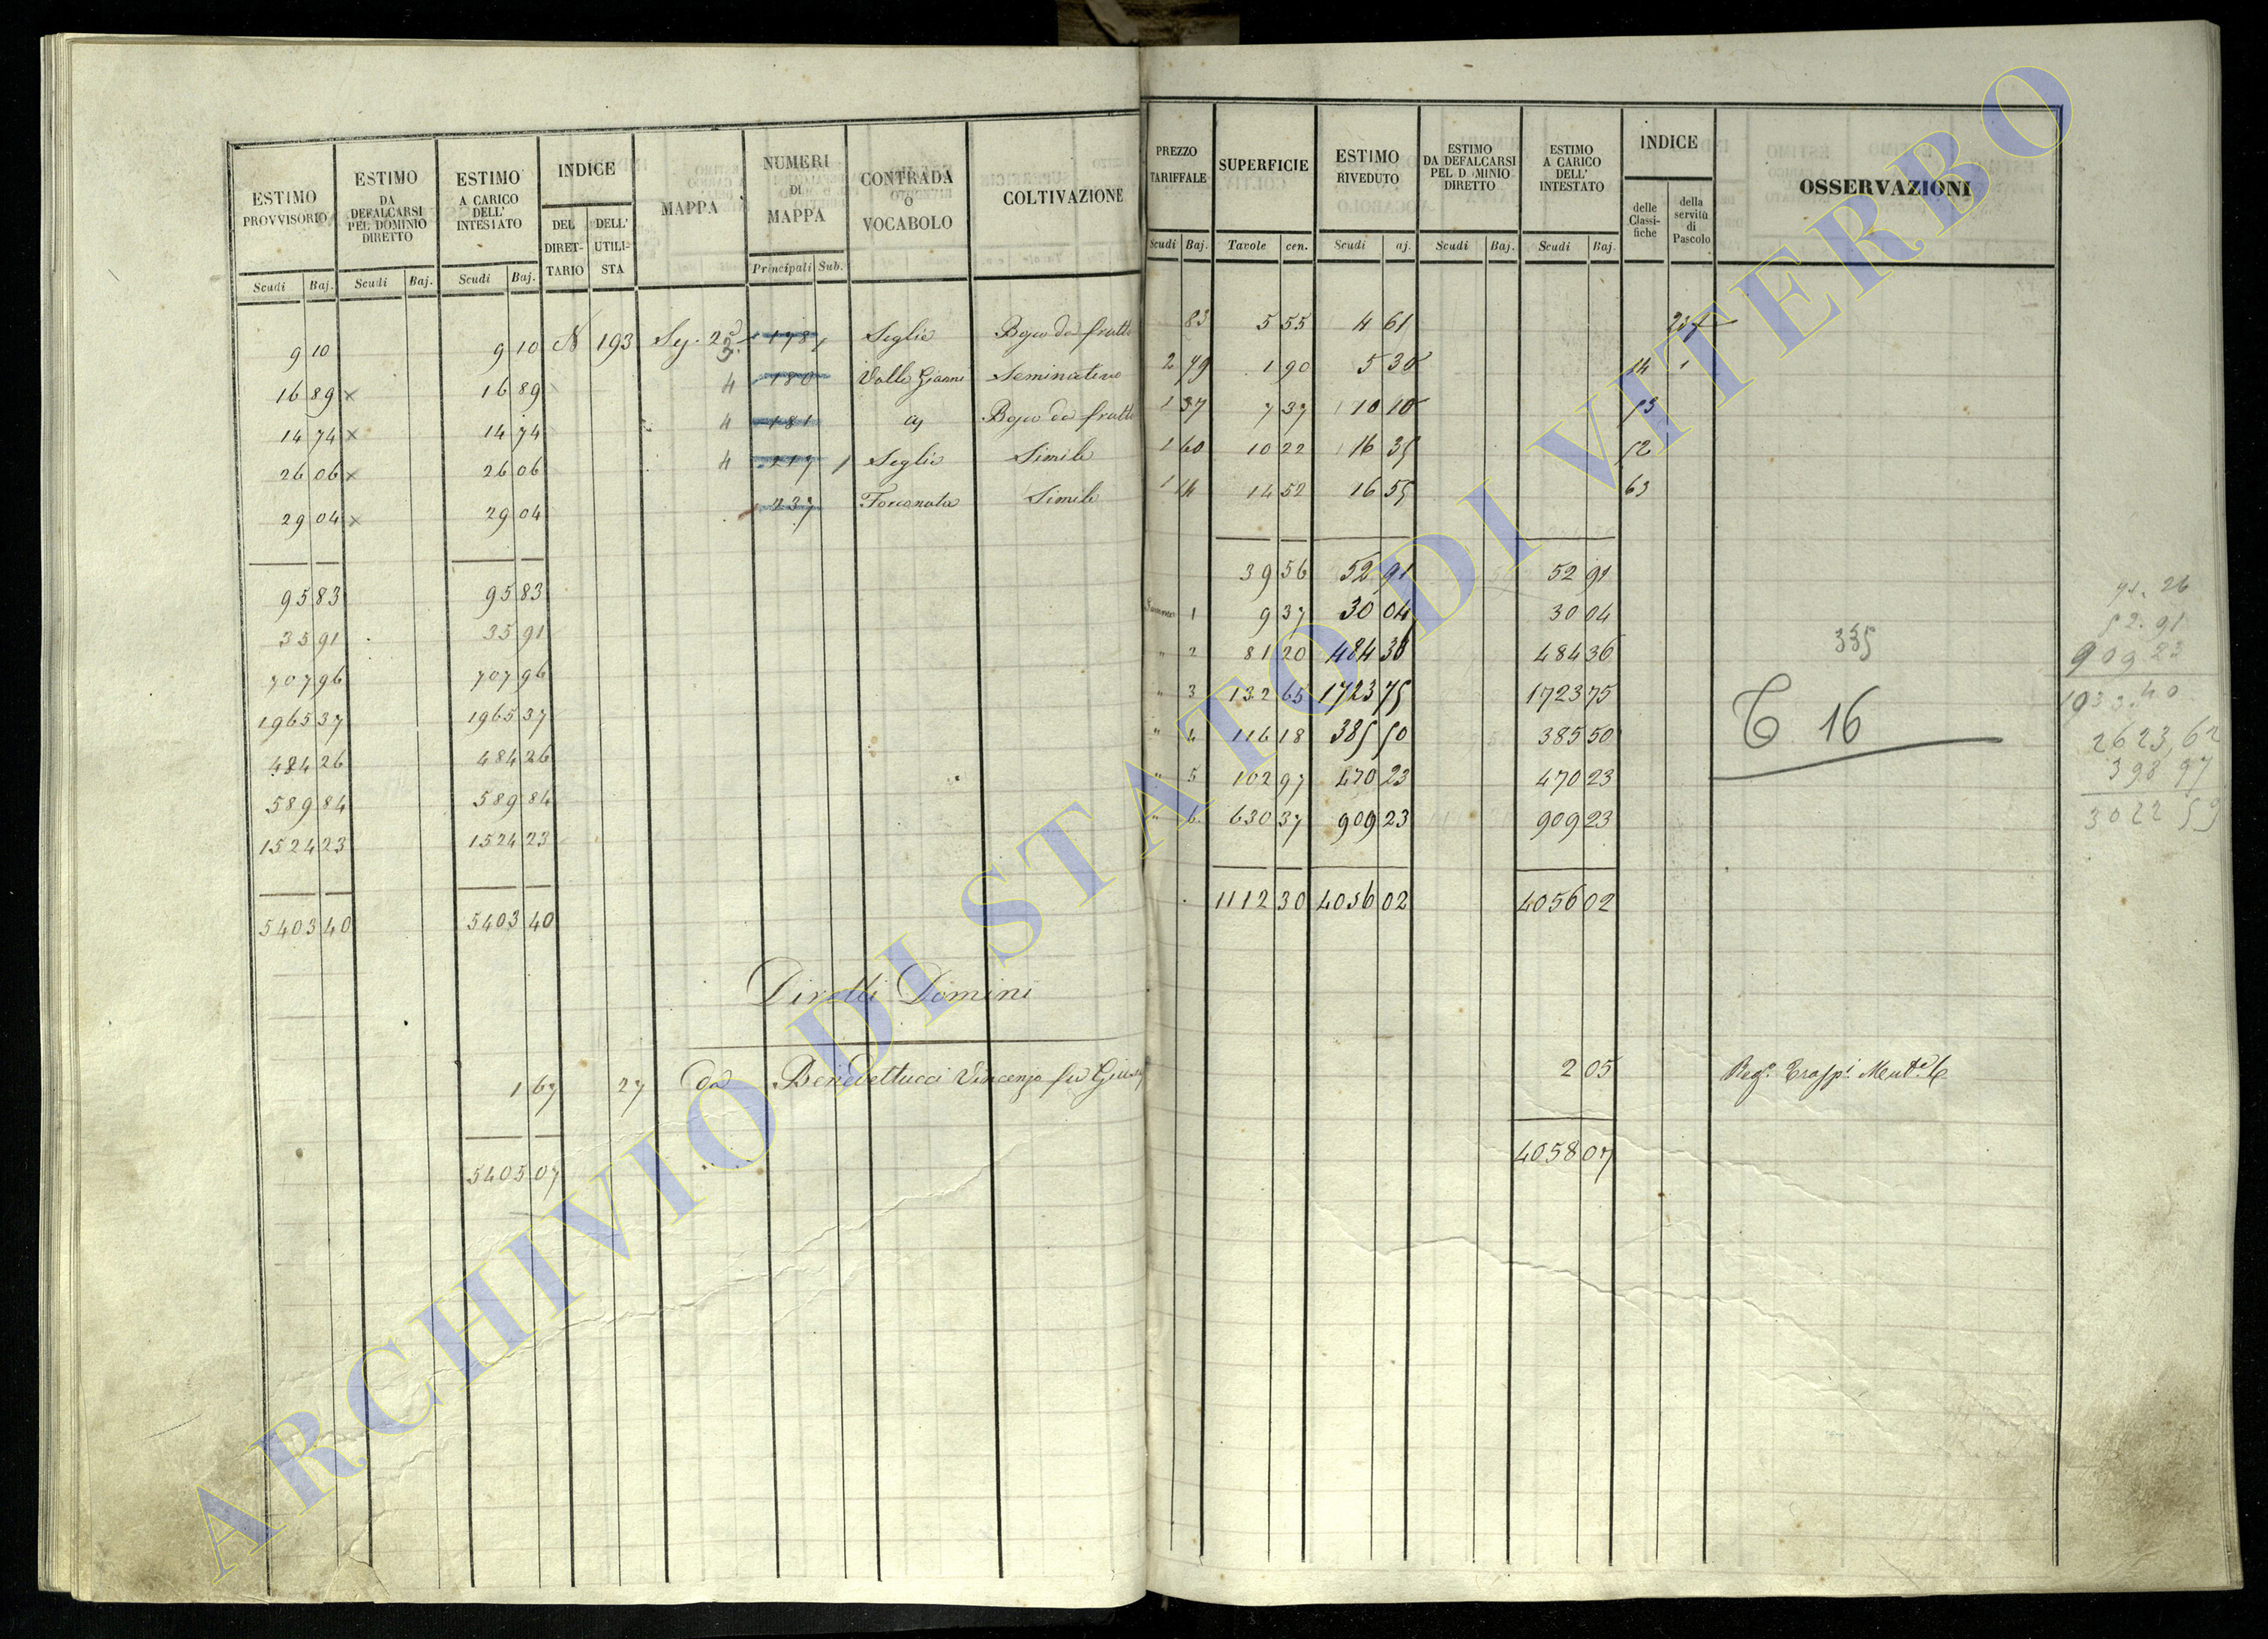 ESTIMO PROVVISORIO | ESTIMO DA DEFALCARSI PEL DOMINIO DIRETTO | ESTIMO A CARICO DELL' INTESTATO | INDICE | MAPPA | NUMERI DI MAPPA | CONTRADA O VOCABOLO | COLTIVAZIONE | PREZZO TARIFFALE | SUPERFICIE | ESTIMO RIVEDUTO | ESTIMO DA DEFALCARSI PEL D MINIO DIRETTO | ESTIMO A CARICO DELL' INTESTATO | INDICE | OSSERVAZIONI
DEL DIRETTARIO | DELL' UTILISTA | delle Classifiche | della servitù di Pascolo
Scudi | Baj. | Scudi | Baj. | Scudi | Baj. | Principali | Sub. | Scudi | Baj. | Tavole | cen. | Scudi | aj. | Scudi | Baj. | Scudi | Baj.
9 10 | 9 10 | N | 193 | 178 | Seglie | 83 | 5 55 | 4 61
16 89 x | 16 89 | 4 | 180 | Valle Gianni | Seminativo | 2 79 | 1 90 | 5 30 | 14
14 74 x | 14 74 | 4 | 181 | 1 37 | 7 37 | 10 10 | 13
26 06 x | 26 06 | 4 | 217 | Seglie | Simile | 1 60 | 10 22 | 16 35 | 12
29 04 x | 29 04 | 237 | Forconata | Simile | 1 14 | 14 52 | 16 55 | 63
95 83 | 95 83 | 39 56 | 52 91 | 52 91
35 91 | 35 91 | 1 | 9 37 | 30 04 | 30 04
707 96 | 707 96 | " 2 | 81 20 | 484 36 | 484 36
1965 37 | 1965 37 | " 3 | 132 65 | 1723 75 | 1723 75
484 26 | 484 26 | " 4 | 116 18 | 385 50 | 385 50
589 84 | 589 84 | " 5 | 102 97 | 470 23 | 470 23
1524 23 | 1524 23 | " 6 | 630 37 | 909 23 | 909 23
5403 40 | 5403 40 | 1112 30 | 4056 02 | 4056 02
335
16
71. 26
52. 91
909 23
2623,62
398 97
3022 59
Diretti Domini
1 67 | 27 | da Benedettucci Vincenzo fu | 2 05
5405 07 | 4058 07
ARCHIVIO DI STATO DI VITERBO